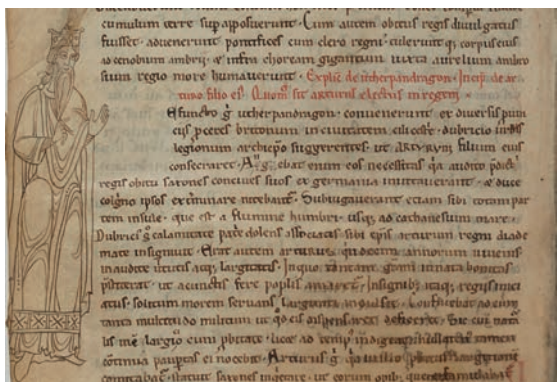 cumulum terre sup apposuerunt. Cum autem obitus regis diuulgatus
fuisset. aduenerunt pontifices cum clero regni. tulerunt q corpus eius
ad cenobium ambrii. & infra choream gigantum iuxta aurelium ambro
sium regio more humauerunt. Explic de utherpandragon. Incip de ar
turo filio ei. Quom sit arturus electus in regem.
efuncto g utherpandragon. conuenerunt ex diuersis puin
ciis pceres britonum in ciuitatem cilcestr. dubricio urbis
legionum archiepo suggerentes. ut arturum filium eius
consecraret. ebat enim eos necessitas qa audito pdicti
regis obitu saxones conciues suos ex germania inuitauerant. & duce
colgrino ipsos exterminare nitebant. Subiugauerant eciam sibi totam par
tem insule. que est a flumine humbri. usq ad mare.
Dubrici g calamitate patrie dolens associatis sibi epis arturum regni diade
mate insigniuit. Erat autem arturus annorum iuuenis
inaudite uirtutis atq largitatis. In quo innata bonitas
pstiterat. ut a cunctis fere poplis amaretur. Insignib itaq regiis inici
atus. solitum morem seruans largitati indulsit. Confluebat ad eum
tanta multitudo militum ut ei qd dispensaret deficeret. Sic cui natu
lis inest largicio cum pbitate. licet ad temp indigeat
continua paupertas ei nocebit. Arturus g qa in illo pbitas largicione
comitabat. statuit saxones inquietare. ut eorum opib